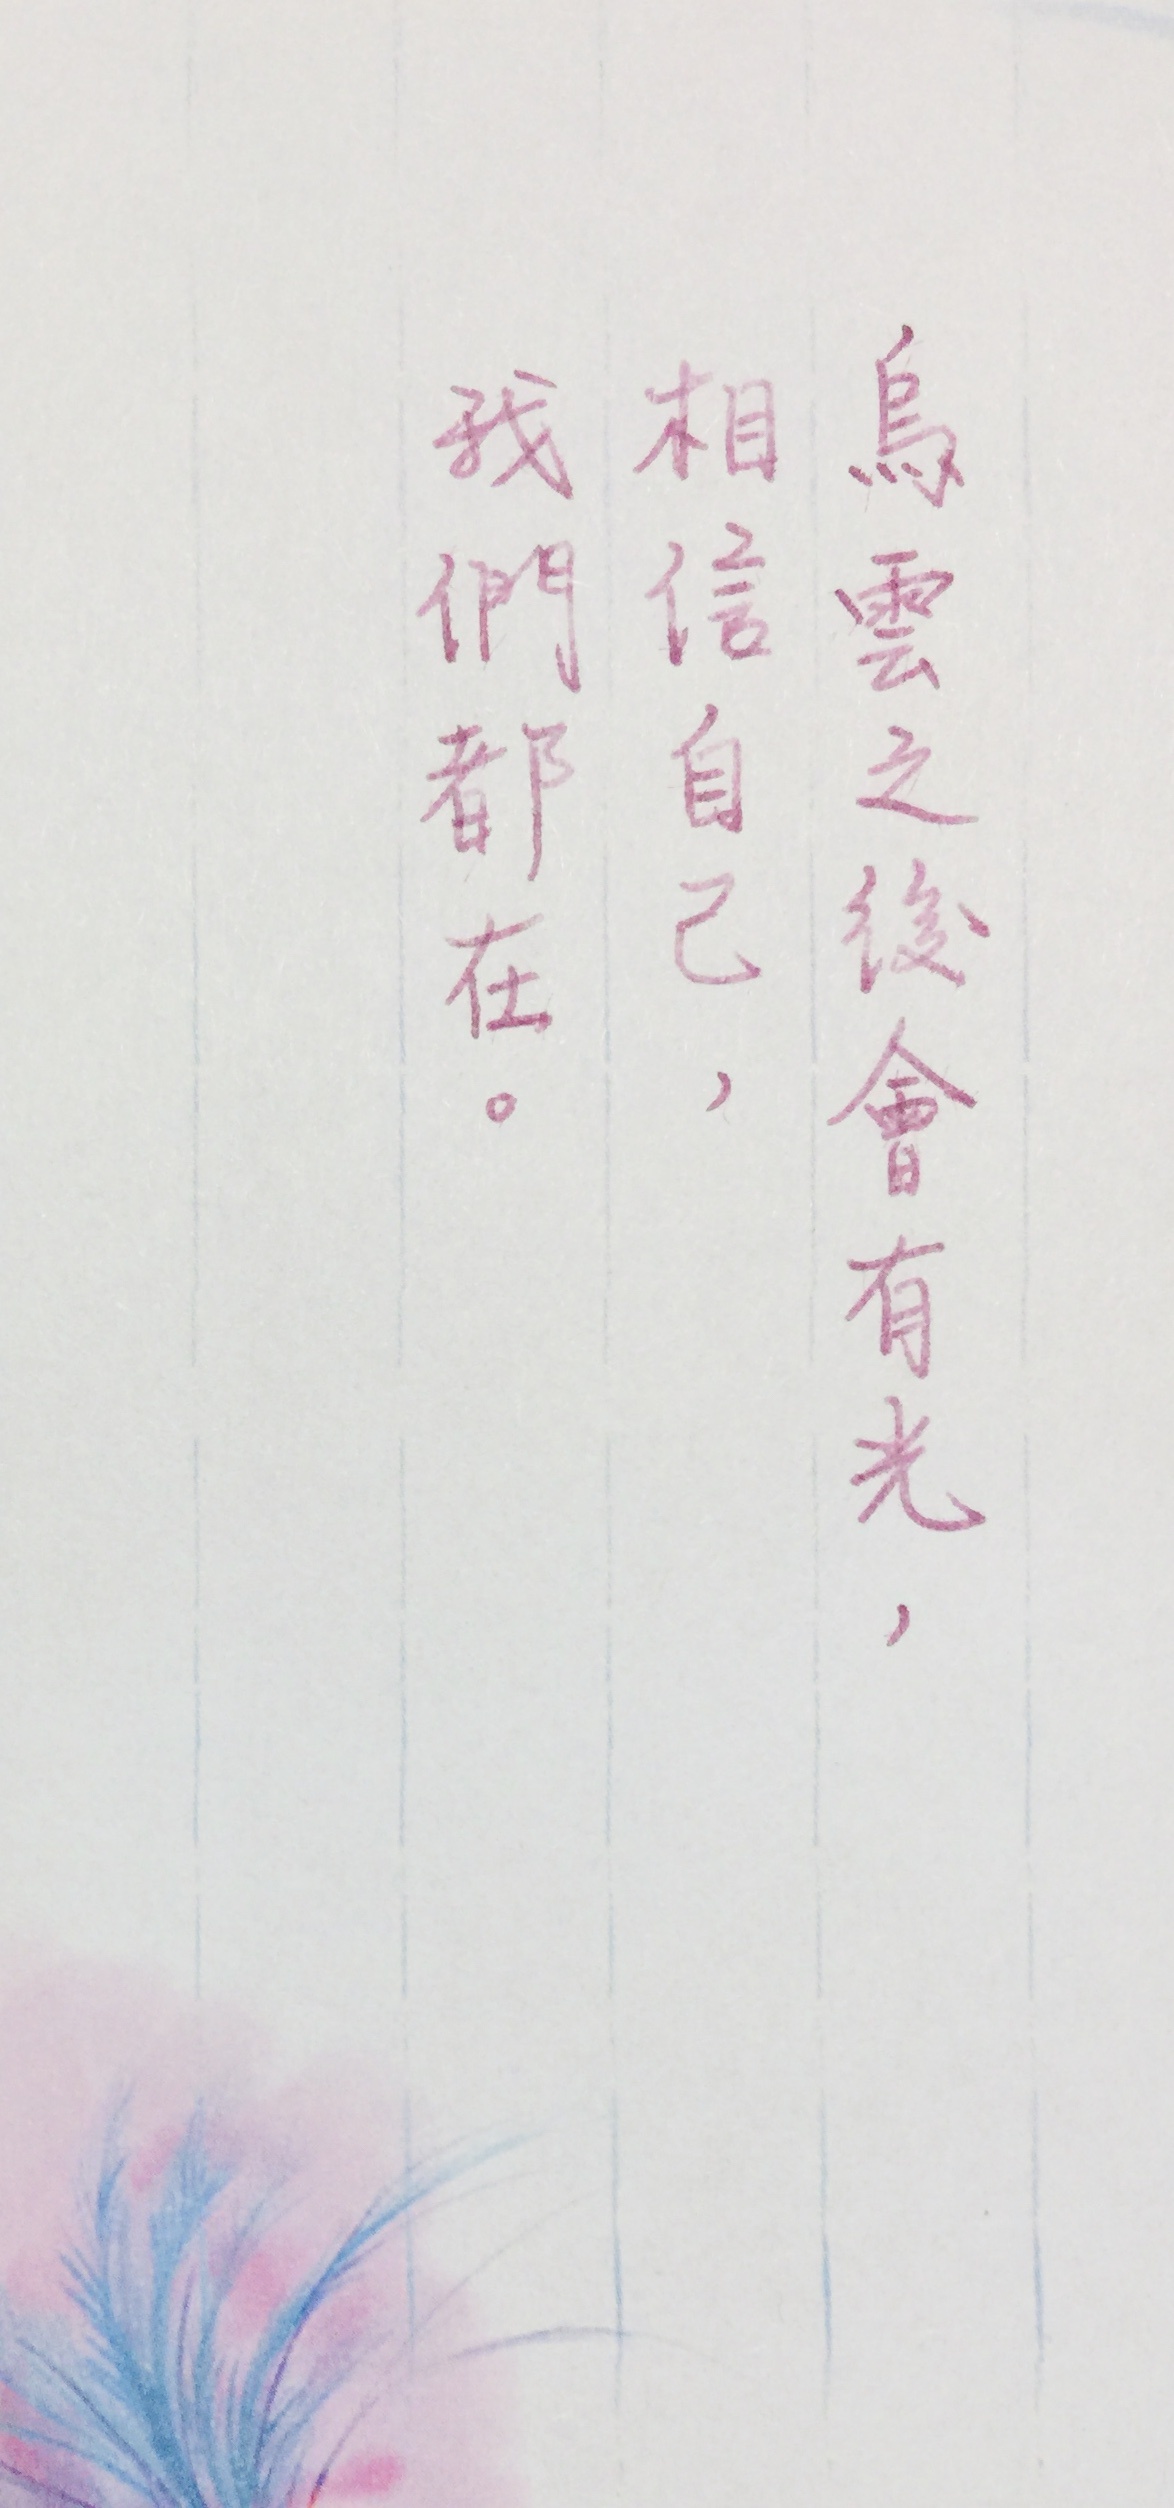 烏雲之後會有光，
相信自己，
我們都在。